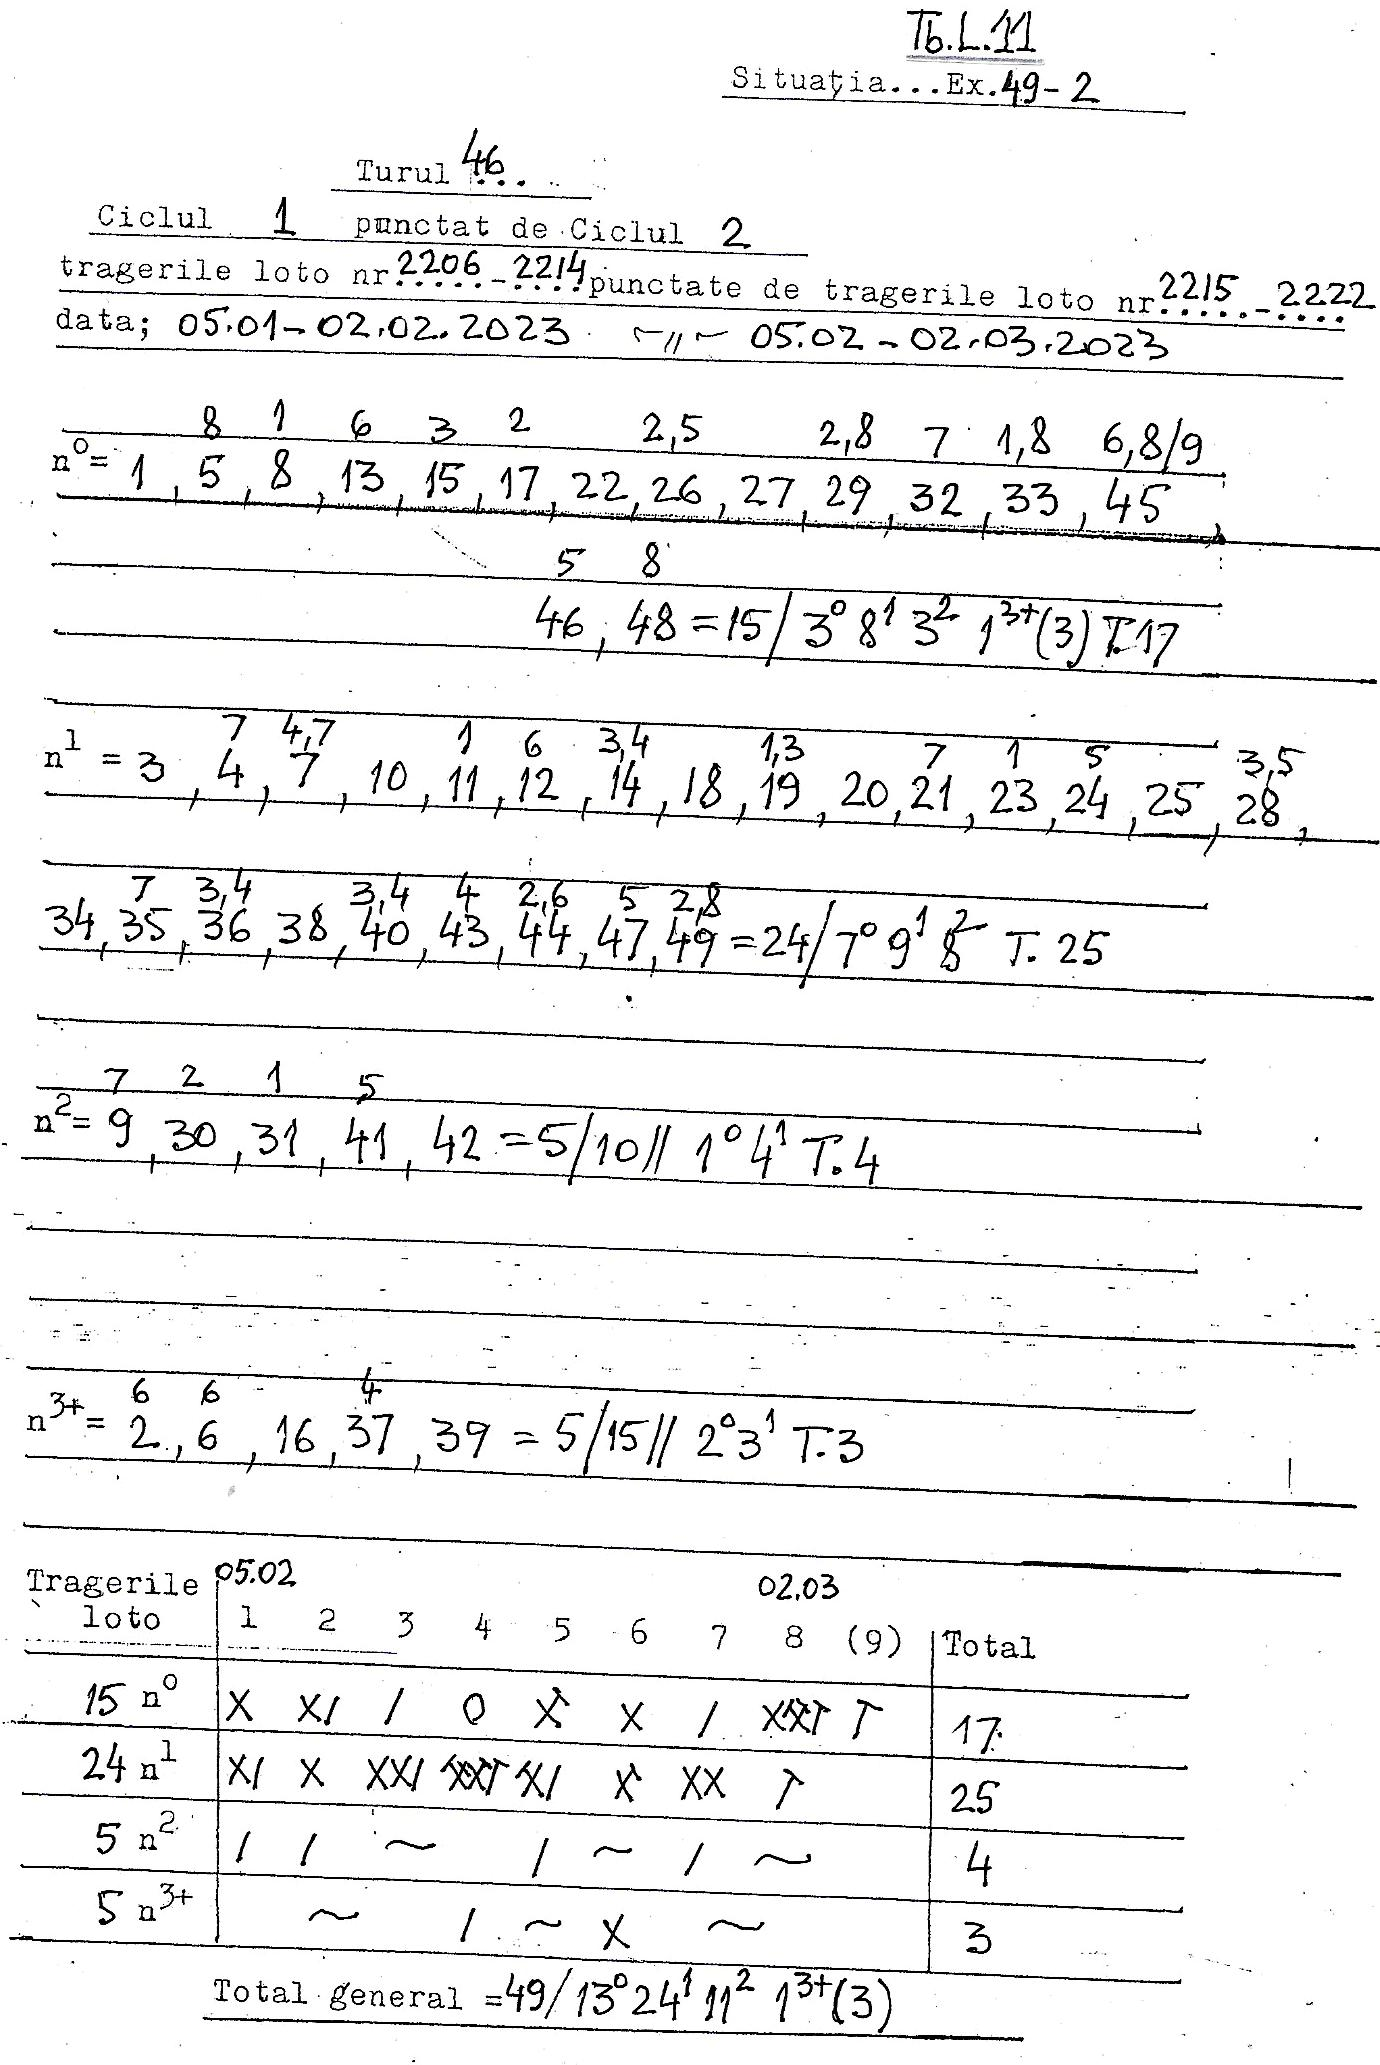 Tb.L.11
Situația...Ex.49-2
Turul 46...
Ciclul 1 punctat de Ciclul 2
tragerile loto nr 2206-2214 punctate de tragerile loto nr 2215-2222
data; 05.01-02.02.2023 ~〃~ 05.02-02.03.2023
8 1 6 3 2 2,5 2,8 7 1,8 6,8/9
n⁰= 1, 5, 8, 13, 15, 17, 22, 26, 27, 29, 32, 33, 45,
5 8
46, 48=15/3⁰ 8¹ 3² 1³⁺(3) T.17
7 4,7 1 6 3,4 1,3 7 1 5 3,5
n¹ = 3, 4, 7, 10, 11, 12, 14, 18, 19, 20, 21, 23, 24, 25, 28,
7 3,4 3,4 4 2,6 5 2,8
34, 35, 36, 38, 40, 43, 44, 47, 49=24/7⁰ 9¹ 8² T. 25
7 2 1 5
n²= 9, 30, 31, 41, 42=5/10// 1⁰ 4¹ T.4
6 6 4
n³⁺= 2, 6, 16, 37, 39 = 5/15// 2⁰ 3¹ T.3
Tragerile 05.02 02.03
loto 1 2 3 4 5 6 7 8 (9) Total
15 n⁰ X X/ / 0 X X / 17
24 n¹ X/ X XX/ XX 25
5 n² / / ~ / ~ / ~ 4
5 n³⁺ ~ / ~ X ~ 3
Total general =49/13⁰ 24¹ 11² 1³⁺(3)